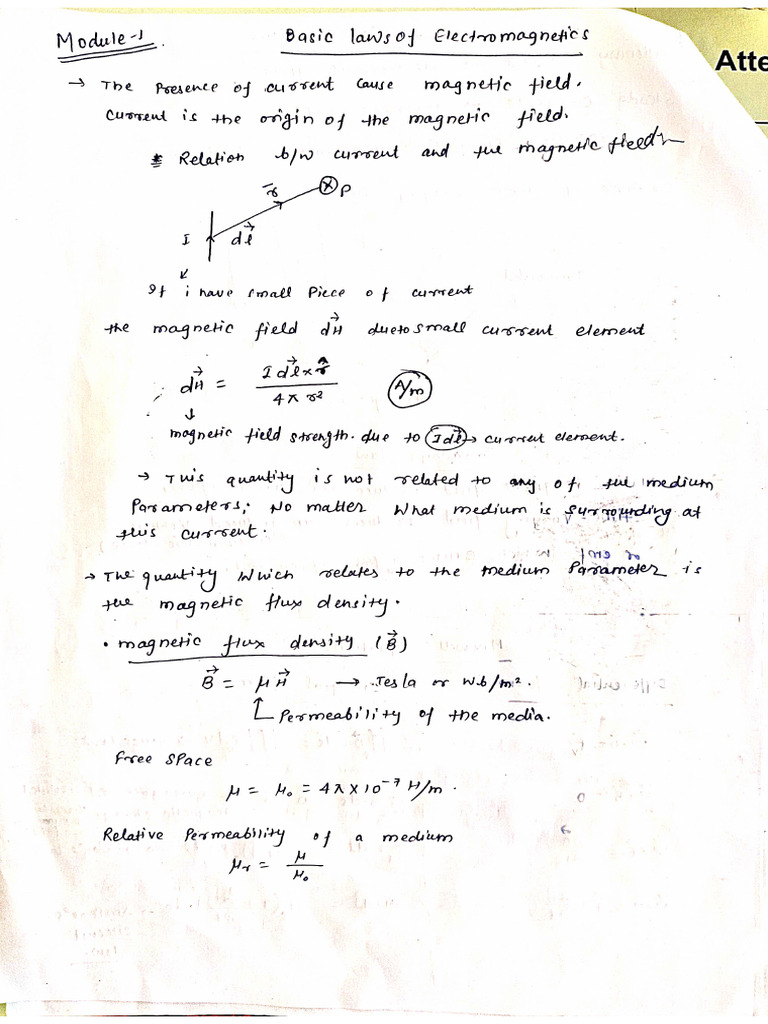 Module-1. Basic laws of Electromagnetics
Atte
→ The Presence of current cause magnetic field.
Current is the origin of the magnetic field.
* Relation b/w current and the magnetic field
r̄ ⊗ P
I dl⃗
If i have small Piece of current
the magnetic field dH⃗ due to small current element
dH⃗ = I dl⃗ × r̂ / 4π r² A/m
magnetic field strength. due to Idl⃗ → current element.
→ This quantity is not related to any of the medium
Parameters; No matter What medium is surrounding at
this current.
→ The quantity Which relates to the medium Parameter is
the magnetic flux density.
• magnetic flux density (B⃗)
B⃗ = μH⃗ → Tesla or Wb/m².
Permeability of the media.
Free Space
μ = μ₀ = 4π×10⁻⁷ H/m.
Relative Permeability of a medium
μr = μ / μ₀